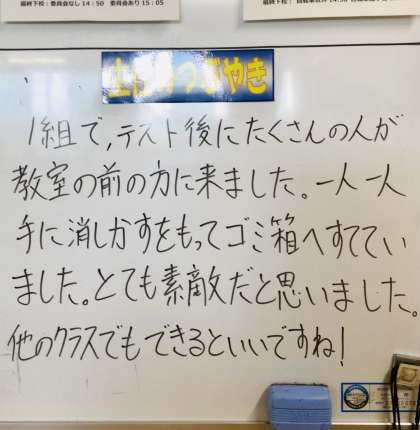 最終下校：委員会なし14：50 委員会あり15：05
つぶやき
1組で,テスト後にたくさんの人が
教室の前の方に来ました。一人一人
手に消しかすをもってゴミ箱へすててい
ました。とても素敵だと思いました。
他のクラスでもできるといいですね!